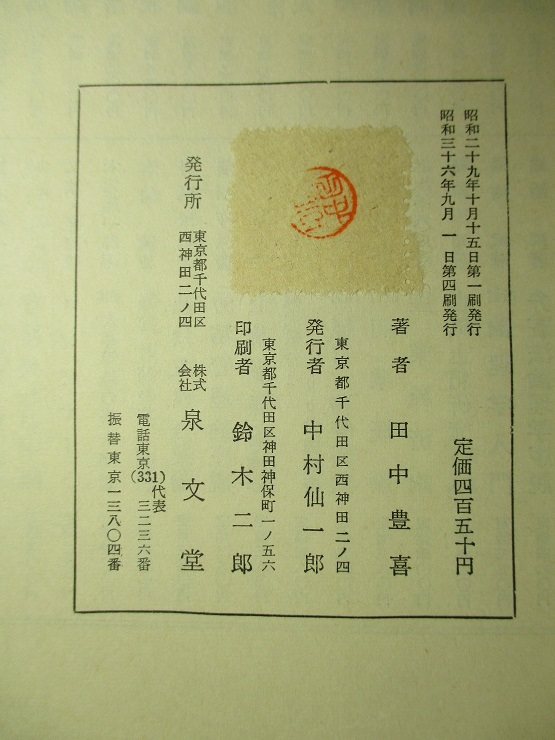 昭和二十九年十月十五日第一刷発行
昭和三十六年九月一日第四刷発行
定価四百五十円
著者 田中豊喜
東京都千代田区西神田二ノ四
発行者 中村仙一郎
東京都千代田区神田神保町一ノ五六
印刷者 鈴木二郎
発行所
東京都千代田区
西神田二ノ四
株式
会社
泉文堂
電話東京(331)代表三二三六番
振替東京一三八〇四番